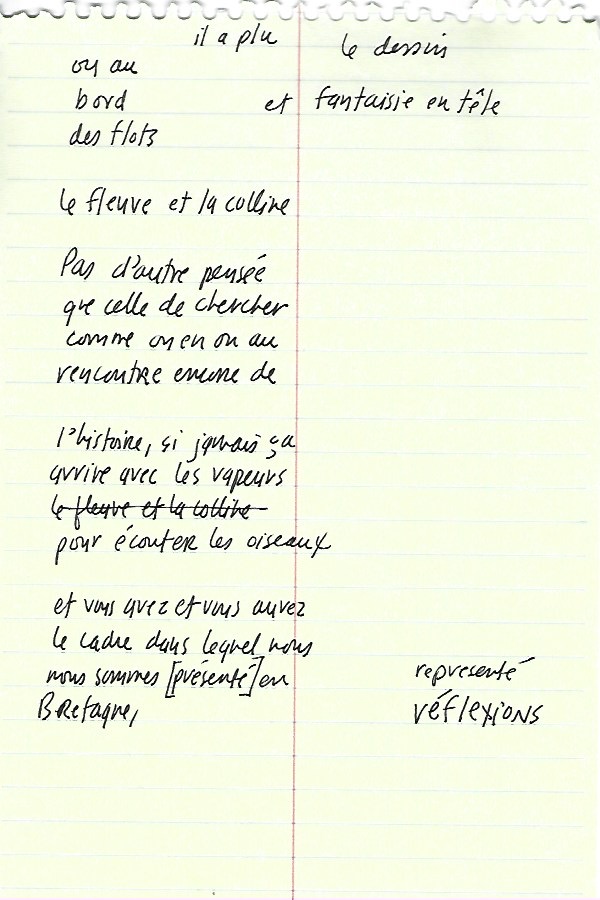 il a plu
le dessin
ou au
bord
et fantaisie en tête
des flots
le fleuve et la colline
Pas d'autre pensée
que celle de chercher
comme on en ou au
rencontre encore de
l'histoire, si jamais ça
arrive avec les vapeurs
le fleuve et la colline
pour écouter les oiseaux
et vous avez et vous aurez
le cadre dans lequel nous
nous sommes [présenté] en
representé
Bretagne,
réflexions